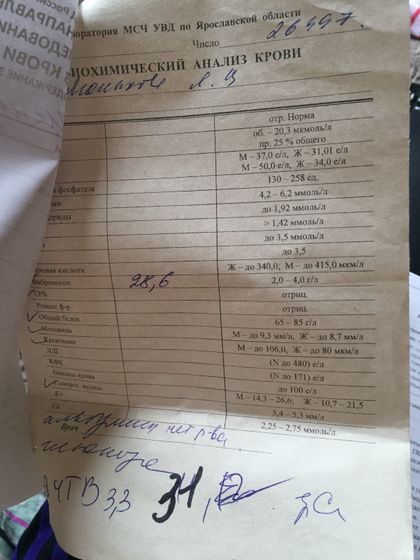 НАПРАВЛ
ЕДОВАНИ
КРОВИ
боратория МСЧ УВД по Ярославской области
Число 26997
ИОХИМИЧЕСКИЙ АНАЛИЗ КРОВИ
отр. Норма
об. – 20,3 мкмоль/л
пр. 25 % общего
М – 37,0 е/л, Ж – 31,01 е/л
М – 50,0 е/л, Ж – 34,0 е/л
фосфатаза 130 – 258 ед.
4,2 – 6,2 ммоль/л
до 1,92 ммоль/л
> 1,42 ммоль/л
до 3,5 ммоль/л
до 3,5
кислота Ж – до 340,0; М – до 415,0 мкм/л
Фибриноген 28,6 2,0 – 4,0 г/л
СРБ отриц.
Ревмат ф-р отриц.
Общий белок 65 – 85 г/л
Мочевина М – до 9,3 мм/л, Ж – до 8,7 мм/л
Креатинин М – до 106,0, Ж – до 80 мкм/л
ЛДГ (N до 480) е/л
КФК (N до 171) е/л
Амилаза крови до 100 е/л
Сыворот. железо М – 14,3 – 26,6; Ж – 10,7 – 21,5
К+ 3,4 – 5,3 мм/л
Са 2,25 – 2,75 ммоль/л
Врач
нет рва
глюкоза
АЧТВ 3,3 31,